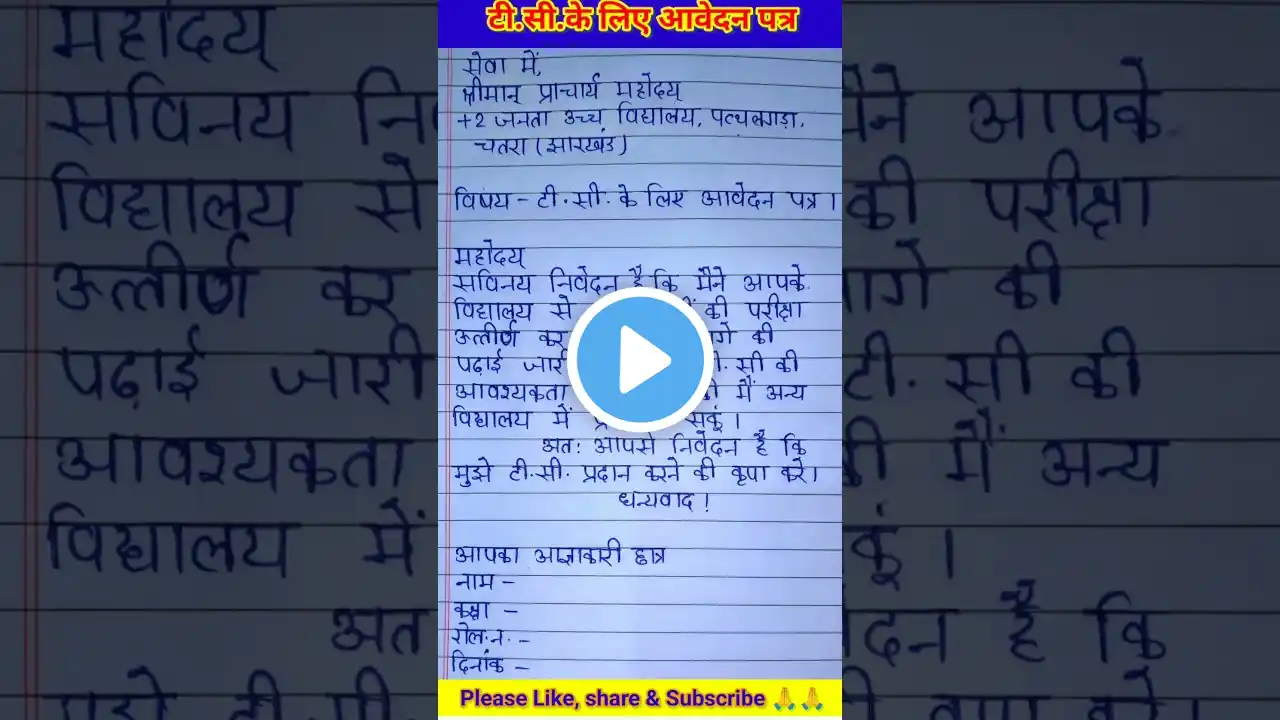 टी.सी.के लिए आवेदन पत्र
सेवा में,
श्रीमान् प्राचार्य महोदय्
+2 जनता उच्च विद्यालय, पत्थलगड़ा,
चतरा (झारखंड)
विषय - टी.सी. के लिए आवेदन पत्र।
महोदय्
सविनय निवेदन है कि मैने आपके
विद्यालय से की परीक्षा
उत्तीर्ण कर की
पढ़ाई जारी टी. सी की
आवश्यकता मैं अन्य
विद्यालय में सकूं।
अतः आपसे निवेदन है कि
मुझे टी.सी. प्रदान करने की कृपा करे।
धन्यवाद!
आपका आज्ञाकारी छात्र
नाम -
कक्षा -
रोल.न. -
दिनांक -
Please Like, share & Subscribe 🙏🙏